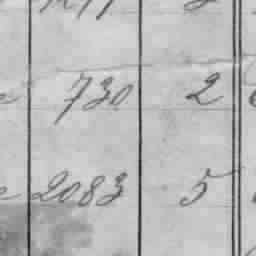 730 2
2083 5